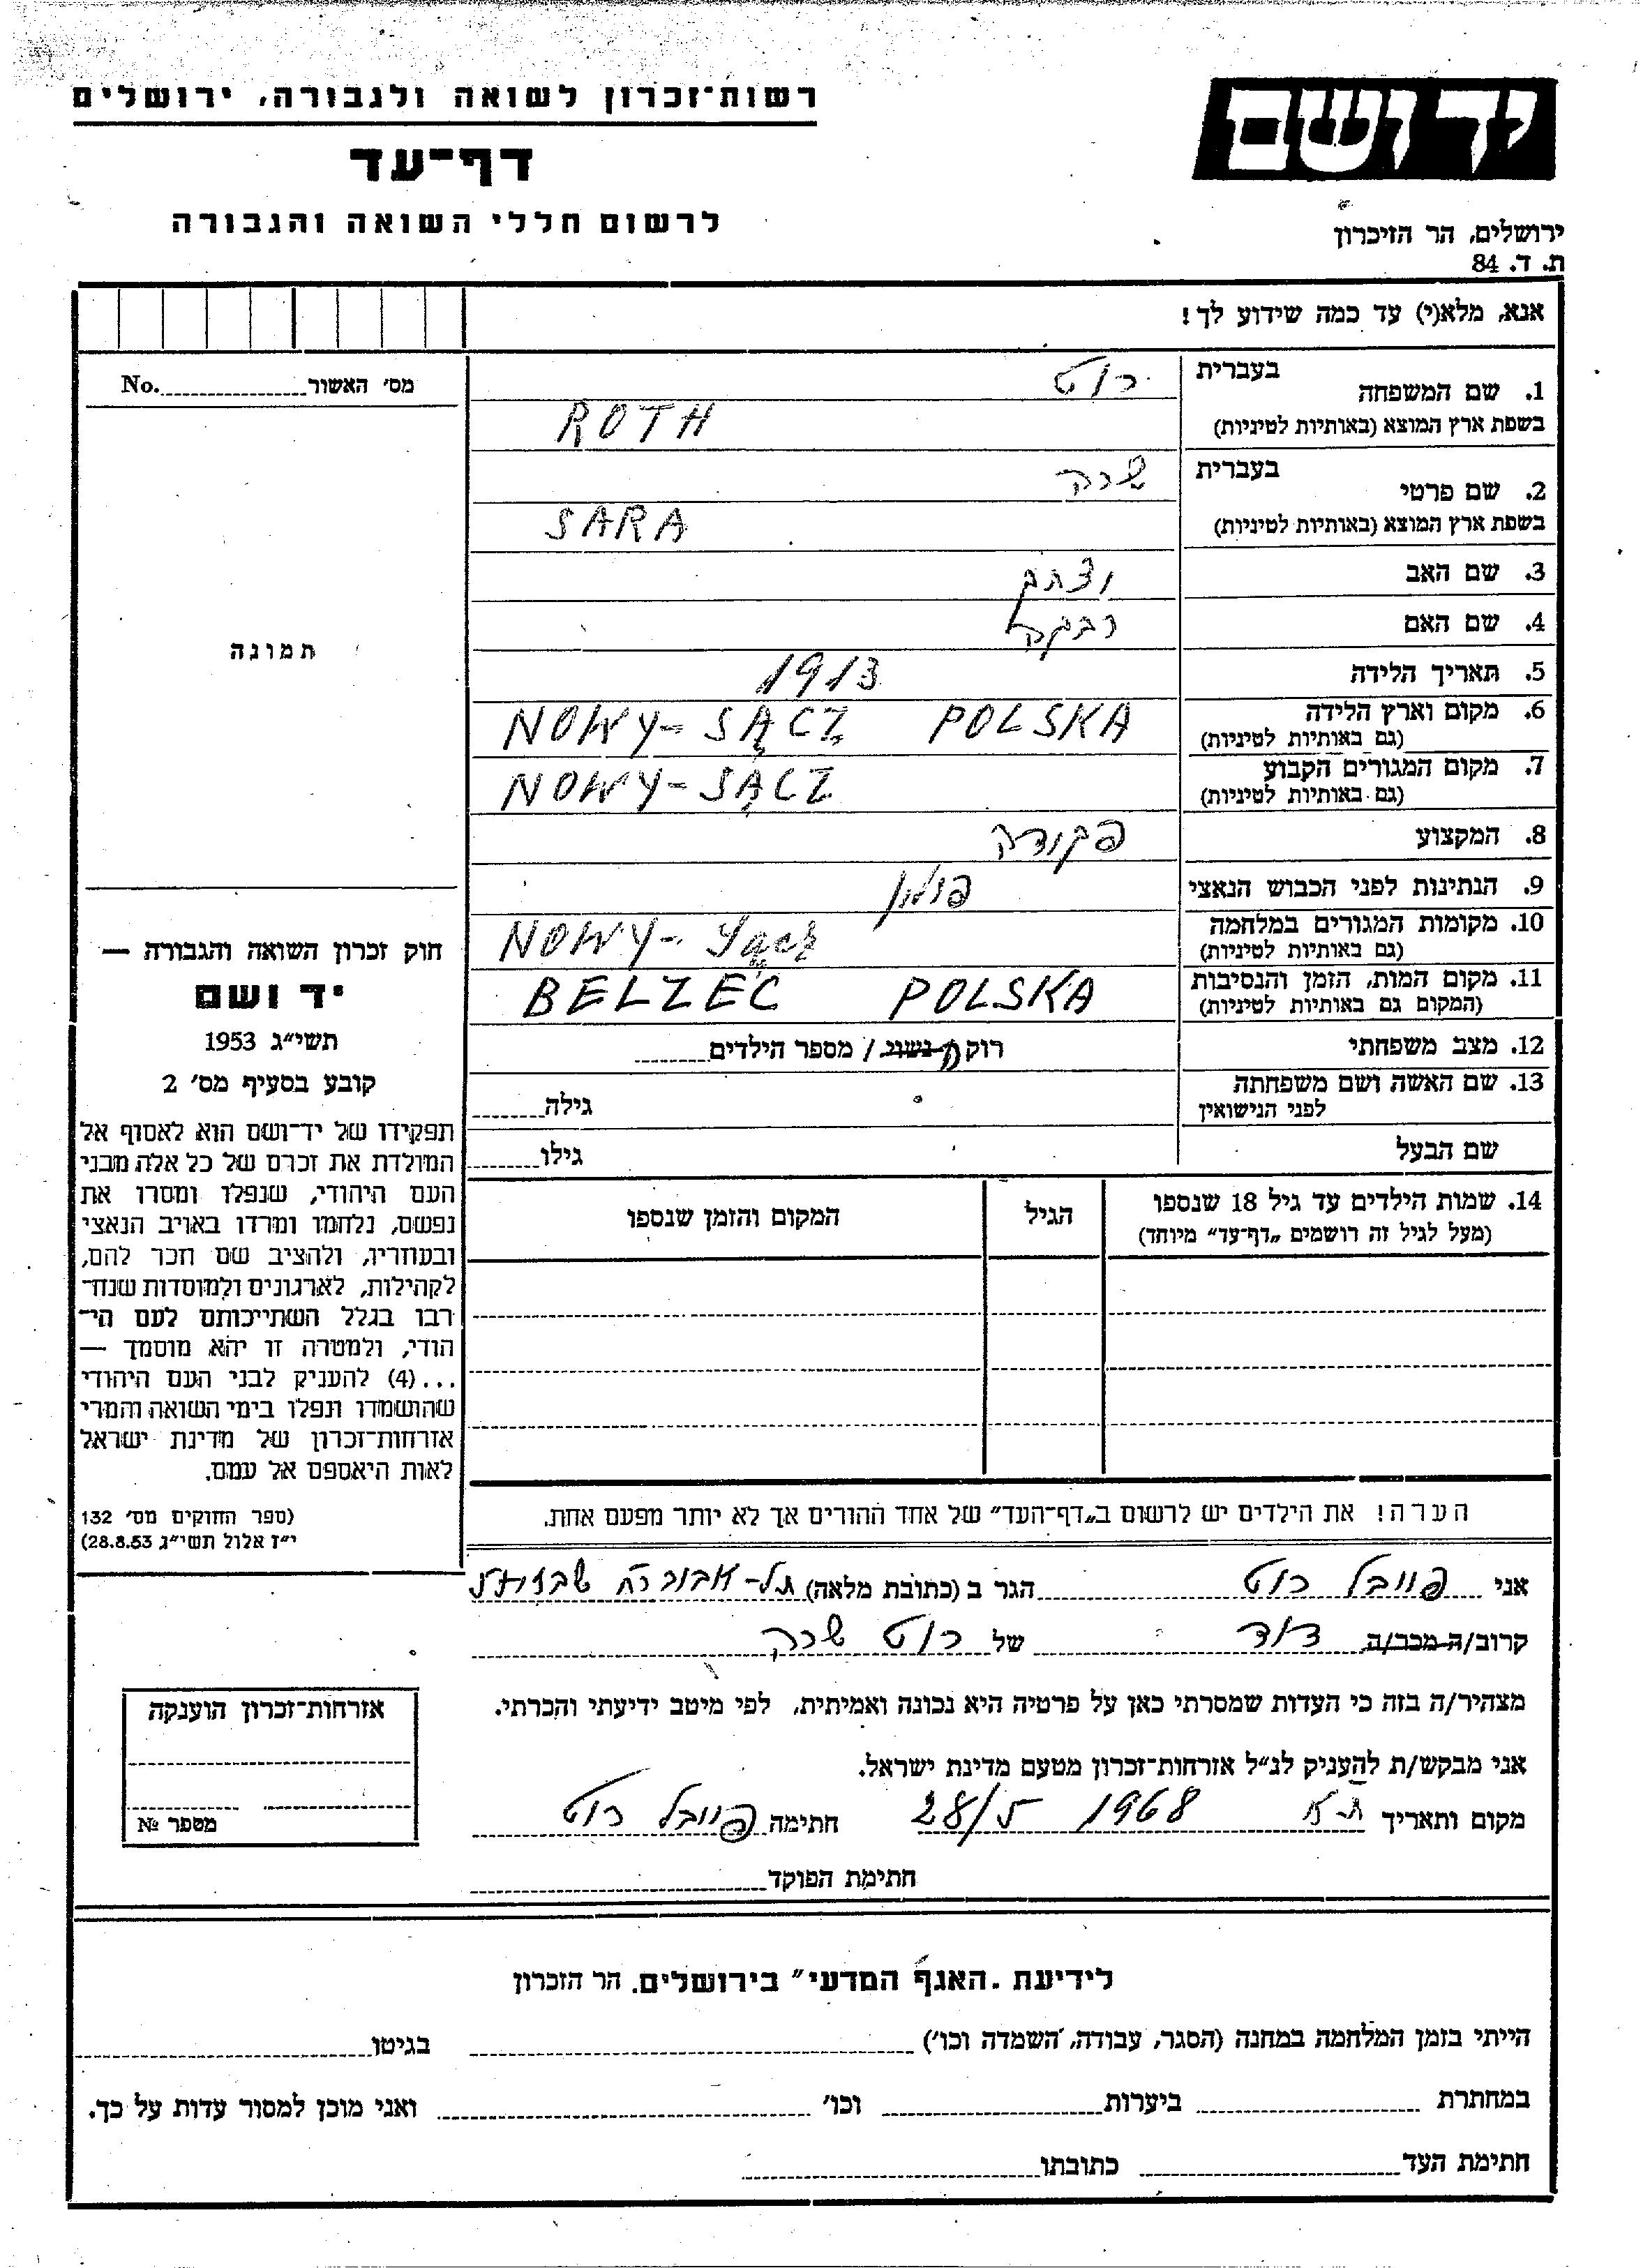 רשות־זכרון לשואה ולגבורה, ירושלים
דף־עד
לרשום חללי השואה והגבורה
יד ושם
ירושלים, הר הזיכרון
ת. ד. 84
אנא, מלא(י) עד כמה שידוע לך!
1. שם המשפחה בעברית רוט
בשפת ארץ המוצא (באותיות לטיניות) ROTH
2. שם פרטי בעברית שרה
בשפת ארץ המוצא (באותיות לטיניות) SARA
3. שם האב יצחק
4. שם האם רבקה
5. תאריך הלידה 1913
6. מקום וארץ הלידה (גם באותיות לטיניות) NOWY-SĄCZ POLSKA
7. מקום המגורים הקבוע (גם באותיות לטיניות) NOWY-SĄCZ
8. המקצוע פקידה
9. הנתינות לפני הכבוש הנאצי פולין
10. מקומות המגורים במלחמה (גם באותיות לטיניות) NOWY-Sącz
11. מקום המות, הזמן והנסיבות (המקום גם באותיות לטיניות) BELZEC POLSKA
12. מצב משפחתי רוקה נשוי / מספר הילדים
13. שם האשה ושם משפחתה לפני הנישואין גילה
שם הבעל גילו
14. שמות הילדים עד גיל 18 שנספו הגיל המקום והזמן שנספו
(מעל לגיל זה רושמים "דף־עד" מיוחד)
הערה! את הילדים יש לרשום ב"דף־העד" של אחד ההורים אך לא יותר מפעם אחת.
מס' האשור No.
תמונה
חוק זכרון השואה והגבורה —
יד ושם
תשי"ג 1953
קובע בסעיף מס' 2
תפקידו של יד־ושם הוא לאסוף אל
המולדת את זכרם של כל אלה מבני
העם היהודי, שנפלו ומסרו את
נפשם, נלחמו ומרדו באויב הנאצי
ובעוזריו, ולהציב שם וזכר להם,
לקהילות, לארגונים ולמוסדות שנח־
רבו בגלל השתייכותם לעם הי־
הודי, ולמטרה זו יהא מוסמך —
...(4) להעניק לבני העם היהודי
שהושמדו ונפלו בימי השואה והמרי
אזרחות־זכרון של מדינת ישראל
לאות היאספם אל עמם.
(ספר החוקים מס' 132
י"ז אלול תשי"ג 28.8.53)
אני פייבל רוט הגר ב (כתובת מלאה) תל-
קרוב/ה מכר/ה דוד של רוט שרה
מצהיר/ה בזה כי העדות שמסרתי כאן על פרטיה היא נכונה ואמיתית, לפי מיטב ידיעתי והכרתי.
אני מבקש/ת להעניק לנ"ל אזרחות־זכרון מטעם מדינת ישראל.
מקום ותאריך ת-א 28/5 1968 חתימה פייבל רוט
חתימת הפוקד
אזרחות־זכרון הוענקה
מספר №
לידיעת "האגף המדעי" בירושלים. הר הזכרון
הייתי בזמן המלחמה במחנה (הסגר, עבודה, השמדה וכו') בגיטו
במחתרת ביערות וכו' ואני מוכן למסור עדות על כך.
חתימת העד כתובתו